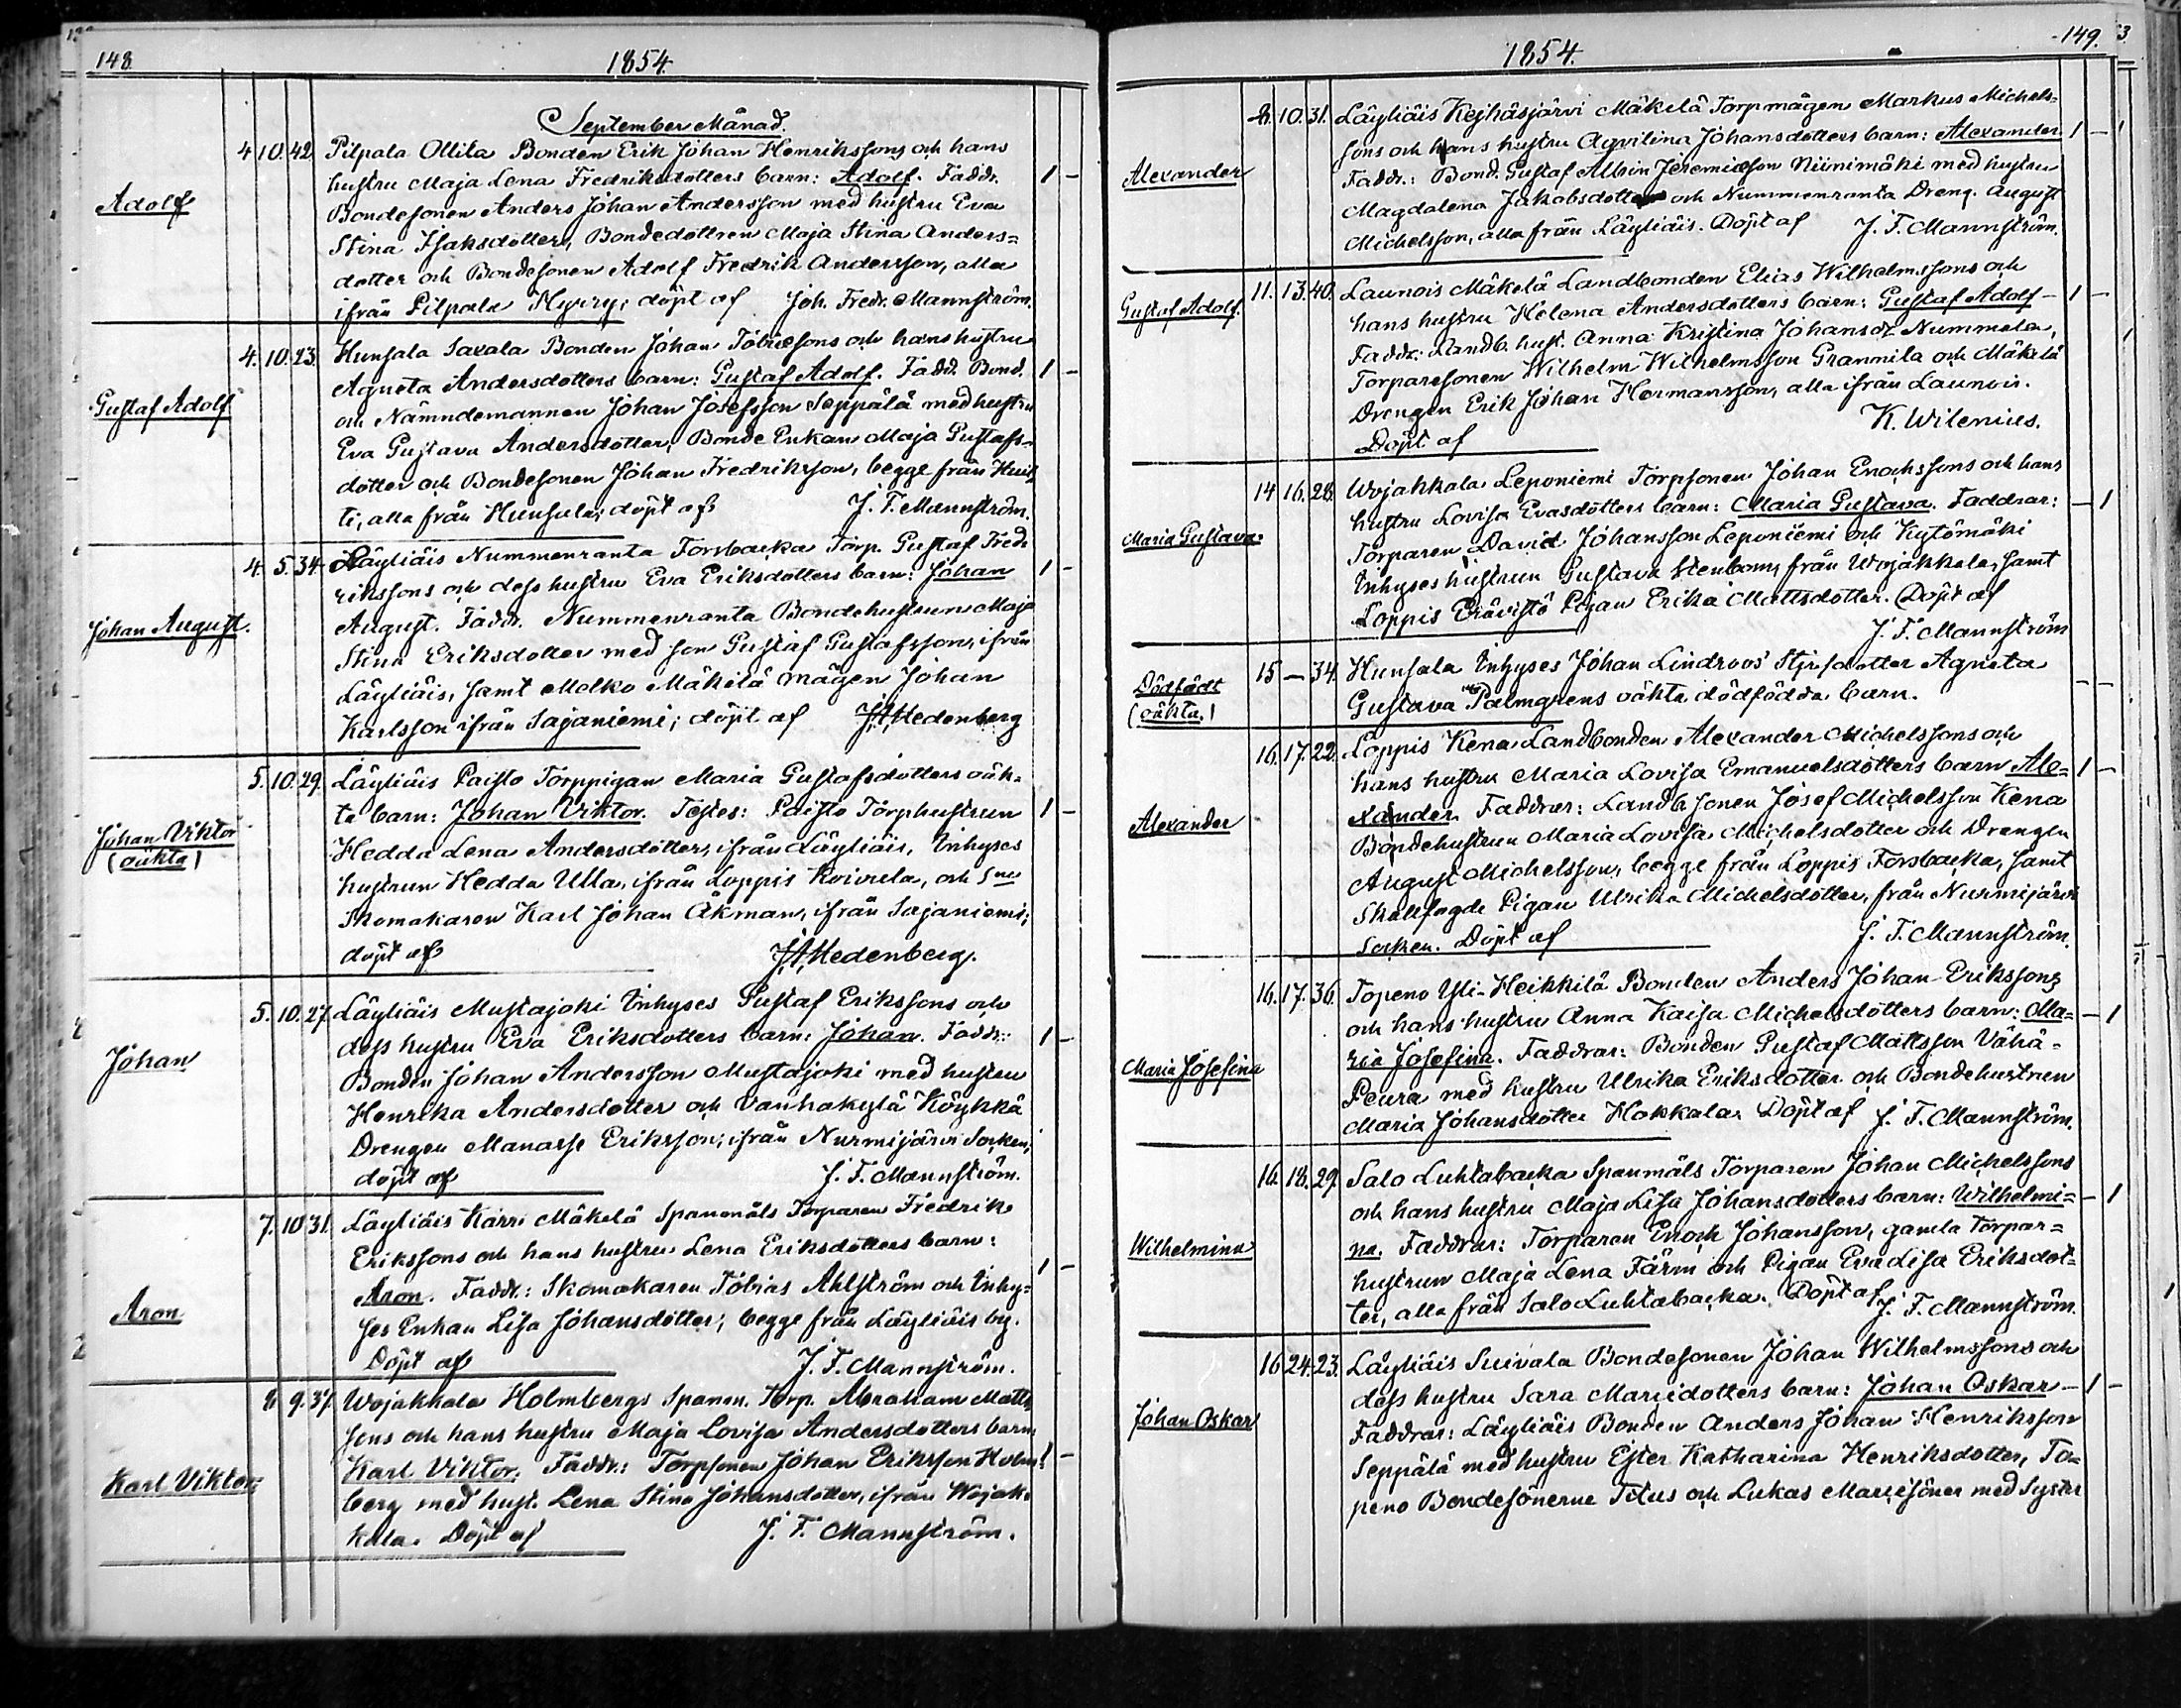 148.
1854.
September Månad.
Adolf
4 10. 42. Pilpala Ollila Bonden Erik Johan Henrikssons och hans
hustru Maja Lena Fredriksdotters barn: Adolf. Faddr. 1 -
Bondesonen Anders Johan Andersson med hustru Eva
Stina Isaksdotter, Bondedottren Maja Stina Anders=
dotter och Bondesonen Adolf Fredrik Andersson, alla
ifrån Pilpala Hyvry; döpt af Joh. Fredr. Mannström.
Gustaf Adolf
4. 10. 23. Hunsala Saxala Bonden Johan Tobiesons och hans hustru
Agneta Andersdotters barn: Gustaf Adolf. Fadd. Bond. 1 -
och Nämndemannen Johan Josefsson Seppälä med hustru
Eva Gustava Andersdotter, Bonde Enkan Maja Gustafs=
dotter och Bondesonen Johan Fredriksson, begge från
ti, alla från Hunsala; döpt af J. F. Mannström.
Johan August.
4. 5. 34. Läyliäis Nummenranta Forsbacka Torp. Gustaf Fred=
rikssons och dess hustru Eva Eriksdotters barn: Johan 1 -
August. Faddr. Nummenranta Bondehustrun Maja
Stina Eriksdotter med son Gustaf Gustafsson, ifrån
Läyliäis, samt Melko Mäkilä mågen Johan
Karlsson ifrån Sajaniemi; döpt af Hedenberg
Johan Viktor
(oäkta)
5. 10. 29. Läyliäis Paisto Torppigan Maria Gustafsdotters oäk=
ta barn: Johan Viktor. Testes: Paisto Torphustrun 1 -
Hedda Lena Andersdotter, ifrån Läyliäis, Inhyses
hustrun Hedda Ulla, ifrån Loppis Koivula, och
Skomakaren Karl Johan Åkman, ifrån Sajaniemi;
döpt af Hedenberg.
Johan
5. 10. 27. Läyliäis Mustajoki Inhyses Gustaf Erikssons och
dess hustru Eva Eriksdotters barn: Johan. Faddr.: 1 -
Bonden Johan Andersson Mustajoki med hustru
Henrika Andersdotter och Vanhakylä Köykkä
Drengen Manasse Eriksson, ifrån Nurmijärvi Socken;
döpt af J. F. Mannström.
Aron
7. 10 31. Läyliäis Karri Mäkelä Spanmåls Torparen Fredrik
Erikssons och hans hustru Lena Eriksdotters barn:
Aron. Faddr.: Skomakaren Tobias Ahlström och Inhy= 1 -
ses Enkan Lisa Johansdotter; begge från Läyliäis by.
Döpt af J. F. Mannström.
Karl Viktor.
8. 9. 37. Wojakkala Holmbergs Spanm. Torp. Abraham Matts
sons och hans hustru Maja Lovisa Andersdotters barn
Karl Viktor. Faddr.: Torpsonen Johan Eriksson Holm= 1 -
berg med hust. Lena Stina Johansdotter, ifrån Wojak=
kala. Döpt af J. F. Mannström.
149.
1854.
Alexander
8. 10. 31. Läyliäis Keihäsjärvi Mäkelä Torpmågen Markus Michels=
sons och hans hustru Agvilina Johansdotters barn: Alexander 1 -
Faddr.: Bond. Gustaf Albin Jeremiæson Niinimäki med hustru
Magdalena Jakobsdotter och Nummenranta Dreng. August
Michelsson, alla från Läyliäis. Döpt af J. F. Mannström.
Gustaf Adolf.
11. 13. 40. Launois Mäkelä Landbonden Elias Wilhelmssons och
hans hustru Helena Andersdotters barn: Gustaf Adolf - 1 -
Faddr.: Landb. hust. Anna Kristina Johansdr. Nummela,
Torparesonen Wilhelm Wilhelmsson Grannila och Mäkelä
Drengen Erik Johan Hermansson, alla ifrån Launois.
Döpt af K. Wilenius.
Maria Gustava.
14 16. 28. Wojakkala Leponiemi Torpsonen Johan Enochssons och hans
hustru Lovisa Evasdotters barn: Maria Gustava. Faddrar: - 1
Torparen David Johansson Leponiemi och Kytömäki
Inhyses hustrun Gustava Stenbom, från Wojakkala, samt
Loppis Erävistö Pigan Erika Mattsdotter. Döpt af
J. F. Mannström
Dödfödt
(oäkta.)
15 — 34. Hunsala Inhyses Johan Lindroos' Styfdotter Agneta
Gustava Palmgrens oäkta dödfödda barn. - -
Alexander
16. 17. 22. Loppis Kena Landbonden Alexander Michelssons och
hans hustru Maria Lovisa Emanuelsdotters barn Ale= 1 -
xander. Faddrar: Landb. sonen Josef Michelsson Kena
Bondehustrun Maria Lovisa Michelsdotter och Drengen
August Michelsson, begge från Loppis Forsbacka, samt
Skallfogde Pigan Ulrika Michelsdotter, från Nurmijärvi
Socken. Döpt af J. F. Mannström.
Maria Josefina
16. 17. 36. Topeno Yli-Heikkilä Bonden Anders Johan Erikssons
och hans hustru Anna Kaisa Michelsdotters barn: Ma= - 1
ria Josefina. Faddrar: Bonden Gustaf Mattsson Vähä-
Peura med hustru Ulrika Eriksdotter och Bondehustrun
Maria Johansdotter Hokkala. Döpt af J. F. Mannström.
Wilhelmina
16. 18. 29. Salo Luhtabacka Spanmåls Torparen Johan Michelssons
och hans hustru Maja Lisa Johansdotters barn: Wilhelmi= - 1
na. Faddrar: Torparen Enoch Johansson, gamla Torpar=
hustrun Maja Lena Färm och Pigan Eva Lisa Eriksdot=
ter, alla från Salo Luhtabacka. Döpt af J. F. Mannström.
Johan Oskar
16 24. 23. Läyliäis Suivala Bondesonen Johan Wilhelmssons och
dess hustru Sara Mariædotters barn: Johan Oskar - 1 -
Faddrar: Läyliäis Bonden Anders Johan Henriksson
Seppälä med hustru Ester Katharina Henriksdotter, To=
peno Bondesönerne Titus och Lukas Mariæsöner med Syster